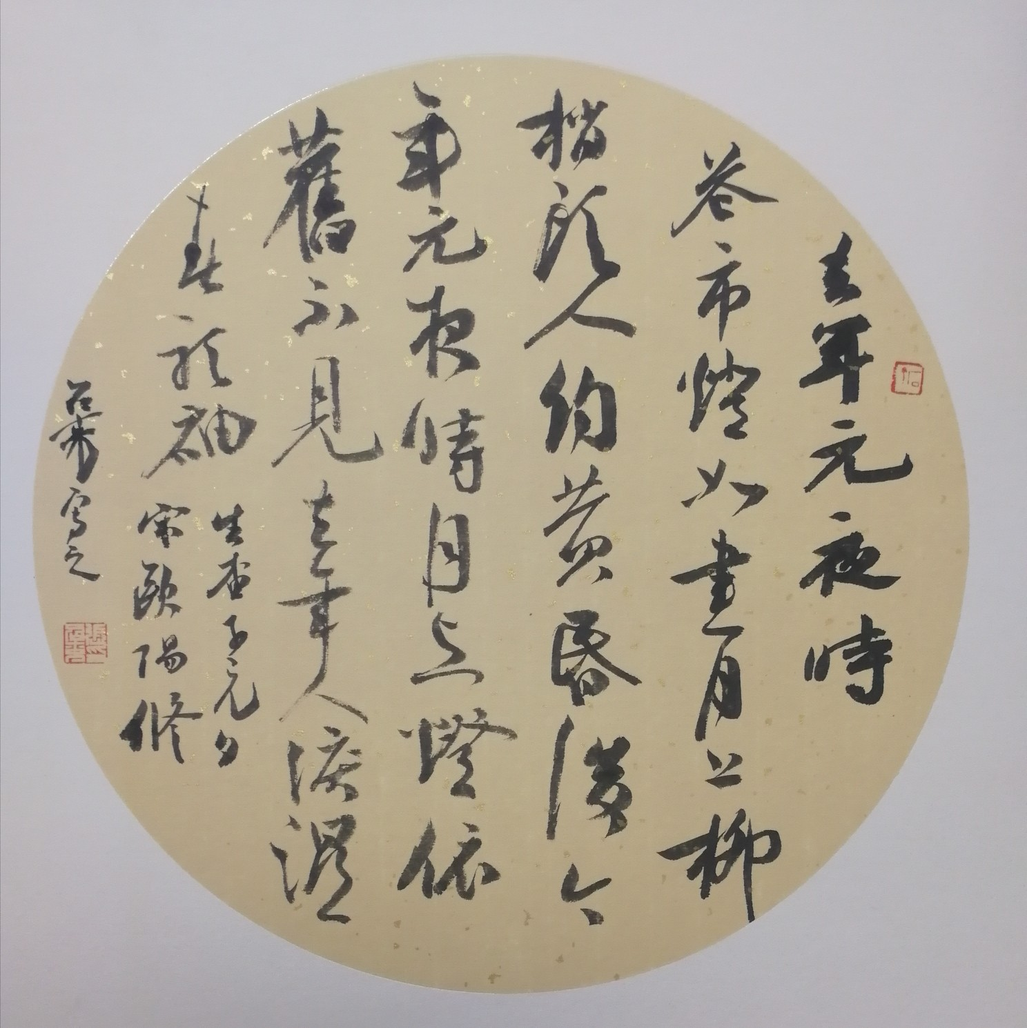 去年元夜時
花市燈如晝月上柳
梢頭人約黃昏後今
年元夜時月与燈依
舊不見去年人淚濕
春衫袖
生查子元夕
宋歐陽修
寫之